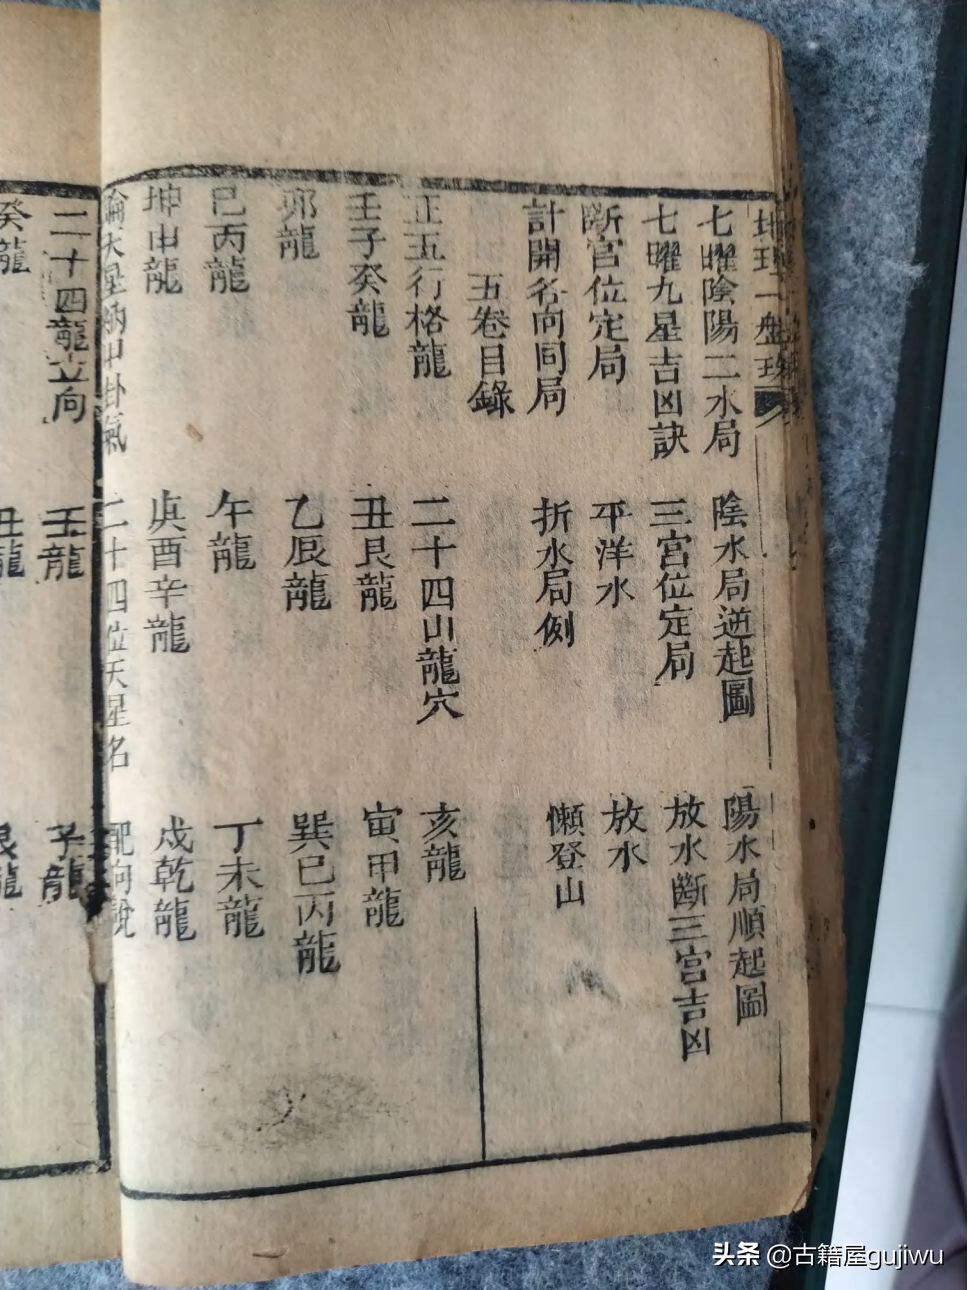 地理一盤珠
七曜陰陽二水局 陰水局逆起圖 陽水局順起圖
七曜九星吉凶訣 三宮位定局 放水斷三宮吉凶
斷宮位定局 平洋水 放水
計開名向同局 折水局例 懶登山
五卷目錄
正五行格龍 二十四山龍穴 亥龍
壬子癸龍 丑艮龍 寅甲龍
卯龍 乙辰龍 巽巳丙龍
巳丙龍 午龍 丁未龍
坤申龍 庚酉辛龍 戌乾龍
論天星納甲卦氣 二十四位天星名 配向說
二十四龍立向 壬龍 子龍
癸龍 丑龍 艮龍
头条 @古籍屋gujiwu